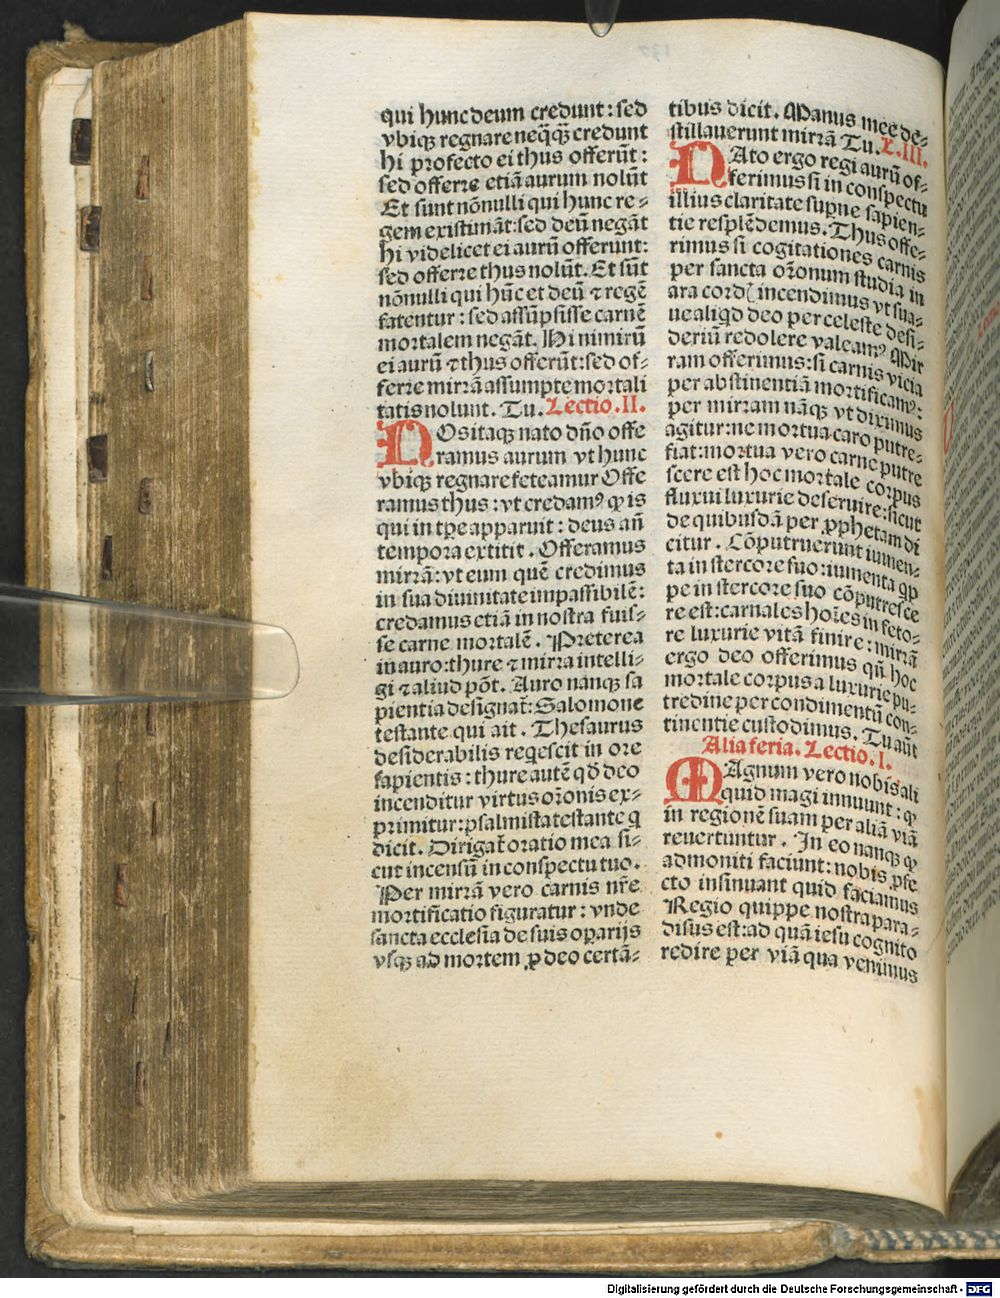 qui hunc deum credunt: sed
vbiqꝫ regnare neq̃q̃ꝫ credunt
hi profecto ei thus offerũt:
sed offerre etiã aurum nolũt
Et sunt nõnulli qui hunc re⸗
gem existimãt: sed deũ negãt
hi videlicet ei aurũ offerunt:
sed offerre thus nolũt. Et sũt
nõnulli qui hũc et deũ ⁊ regẽ
fatentur: sed assũpsisse carnẽ
mortalem negãt. Hi nimirũ
ei aurũ ⁊ thus offerũt: sed of⸗
ferre mirrã assumpte mortali
tatis nolunt. Tu. Lectio.II.
NOs itaqꝫ nato dño offe
ramus aurum vt hunc
vbiqꝫ regnare feteamur Offe
ramus thus: vt credamꝰ ꝙ is
qui in tp̃e apparuit: deus añ
tempora extitit. Offeramus
mirrã: vt eum quẽ credimus
in sua diuinitate impassibilẽ:
credamus etiã in nostra fuis⸗
se carne mortalẽ. Preterea
in auro: thure ⁊ mirra intelli⸗
gi ⁊ aliud põt. Auro nanqꝫ sa
pientia designat̃: Salomone
testante qui ait. Thesaurus
desiderabilis reqescit in ore
sapientis: thure autẽ qð deo
incenditur virtus orõnis ex⸗
primitur: psalmista testante q
dicit. Dirigat̃ oratio mea si⸗
cut incensũ in conspectu tuo.
Per mirrã vero carnis nr̃e
mortificatio figuratur: vnde
sancta ecclesia de suis oparijs
vsqꝫ ad mortem ꝓ deo certã⸗
tibus dicit. Manus mee de⸗
stillauerunt mirrã Tu. L.III.
NAto ergo regi aurũ of⸗
ferimus si in conspectu
illius claritate supne sapien⸗
tie resplẽdemus. Thus offe⸗
rimus si cogitationes carnis
per sancta orõnum studia in
ara cordꝭ incendimus vt sua⸗
ue aliqd deo per celeste desi⸗
deriũ redolere valeamꝰ Mir
ram offerimus: si carnis vicia
per abstinentiã mortificamꝰ:
per mirram nãqꝫ vt diximus
agitur: ne mortua caro putre⸗
fiat: mortua vero carne putre
scere est hoc mortale corpus
fluxui luxurie deseruire: sicut
de quibusdã per ꝓphetam di
citur. Cõputruerunt iumen⸗
ta in stercore suo: iumenta qꝑ
pe in stercore suo cõputresce
re est: carnales hoĩes in feto⸗
re luxurie vitã finire: mirrã
ergo deo offerimus qñ hoc
mortale corpus a luxurie pu⸗
tredine per condimentũ con⸗
tinentie custodimus. Tu aũt
Alia feria. Lectio.I.
MAgnum vero nobis ali
quid magi innuunt: ꝙ
in regionẽ suam per aliã viã
reuertuntur. In eo nanqꝫ ꝙ
admoniti faciunt: nobis ꝓfe
cto insinuant quid faciamus
Regio quippe nostra para⸗
disus est: ad quã iesu cognito
redire per viã qua venimus
Digitalisierung gefördert durch die Deutsche Forschungsgemeinschaft - DFG